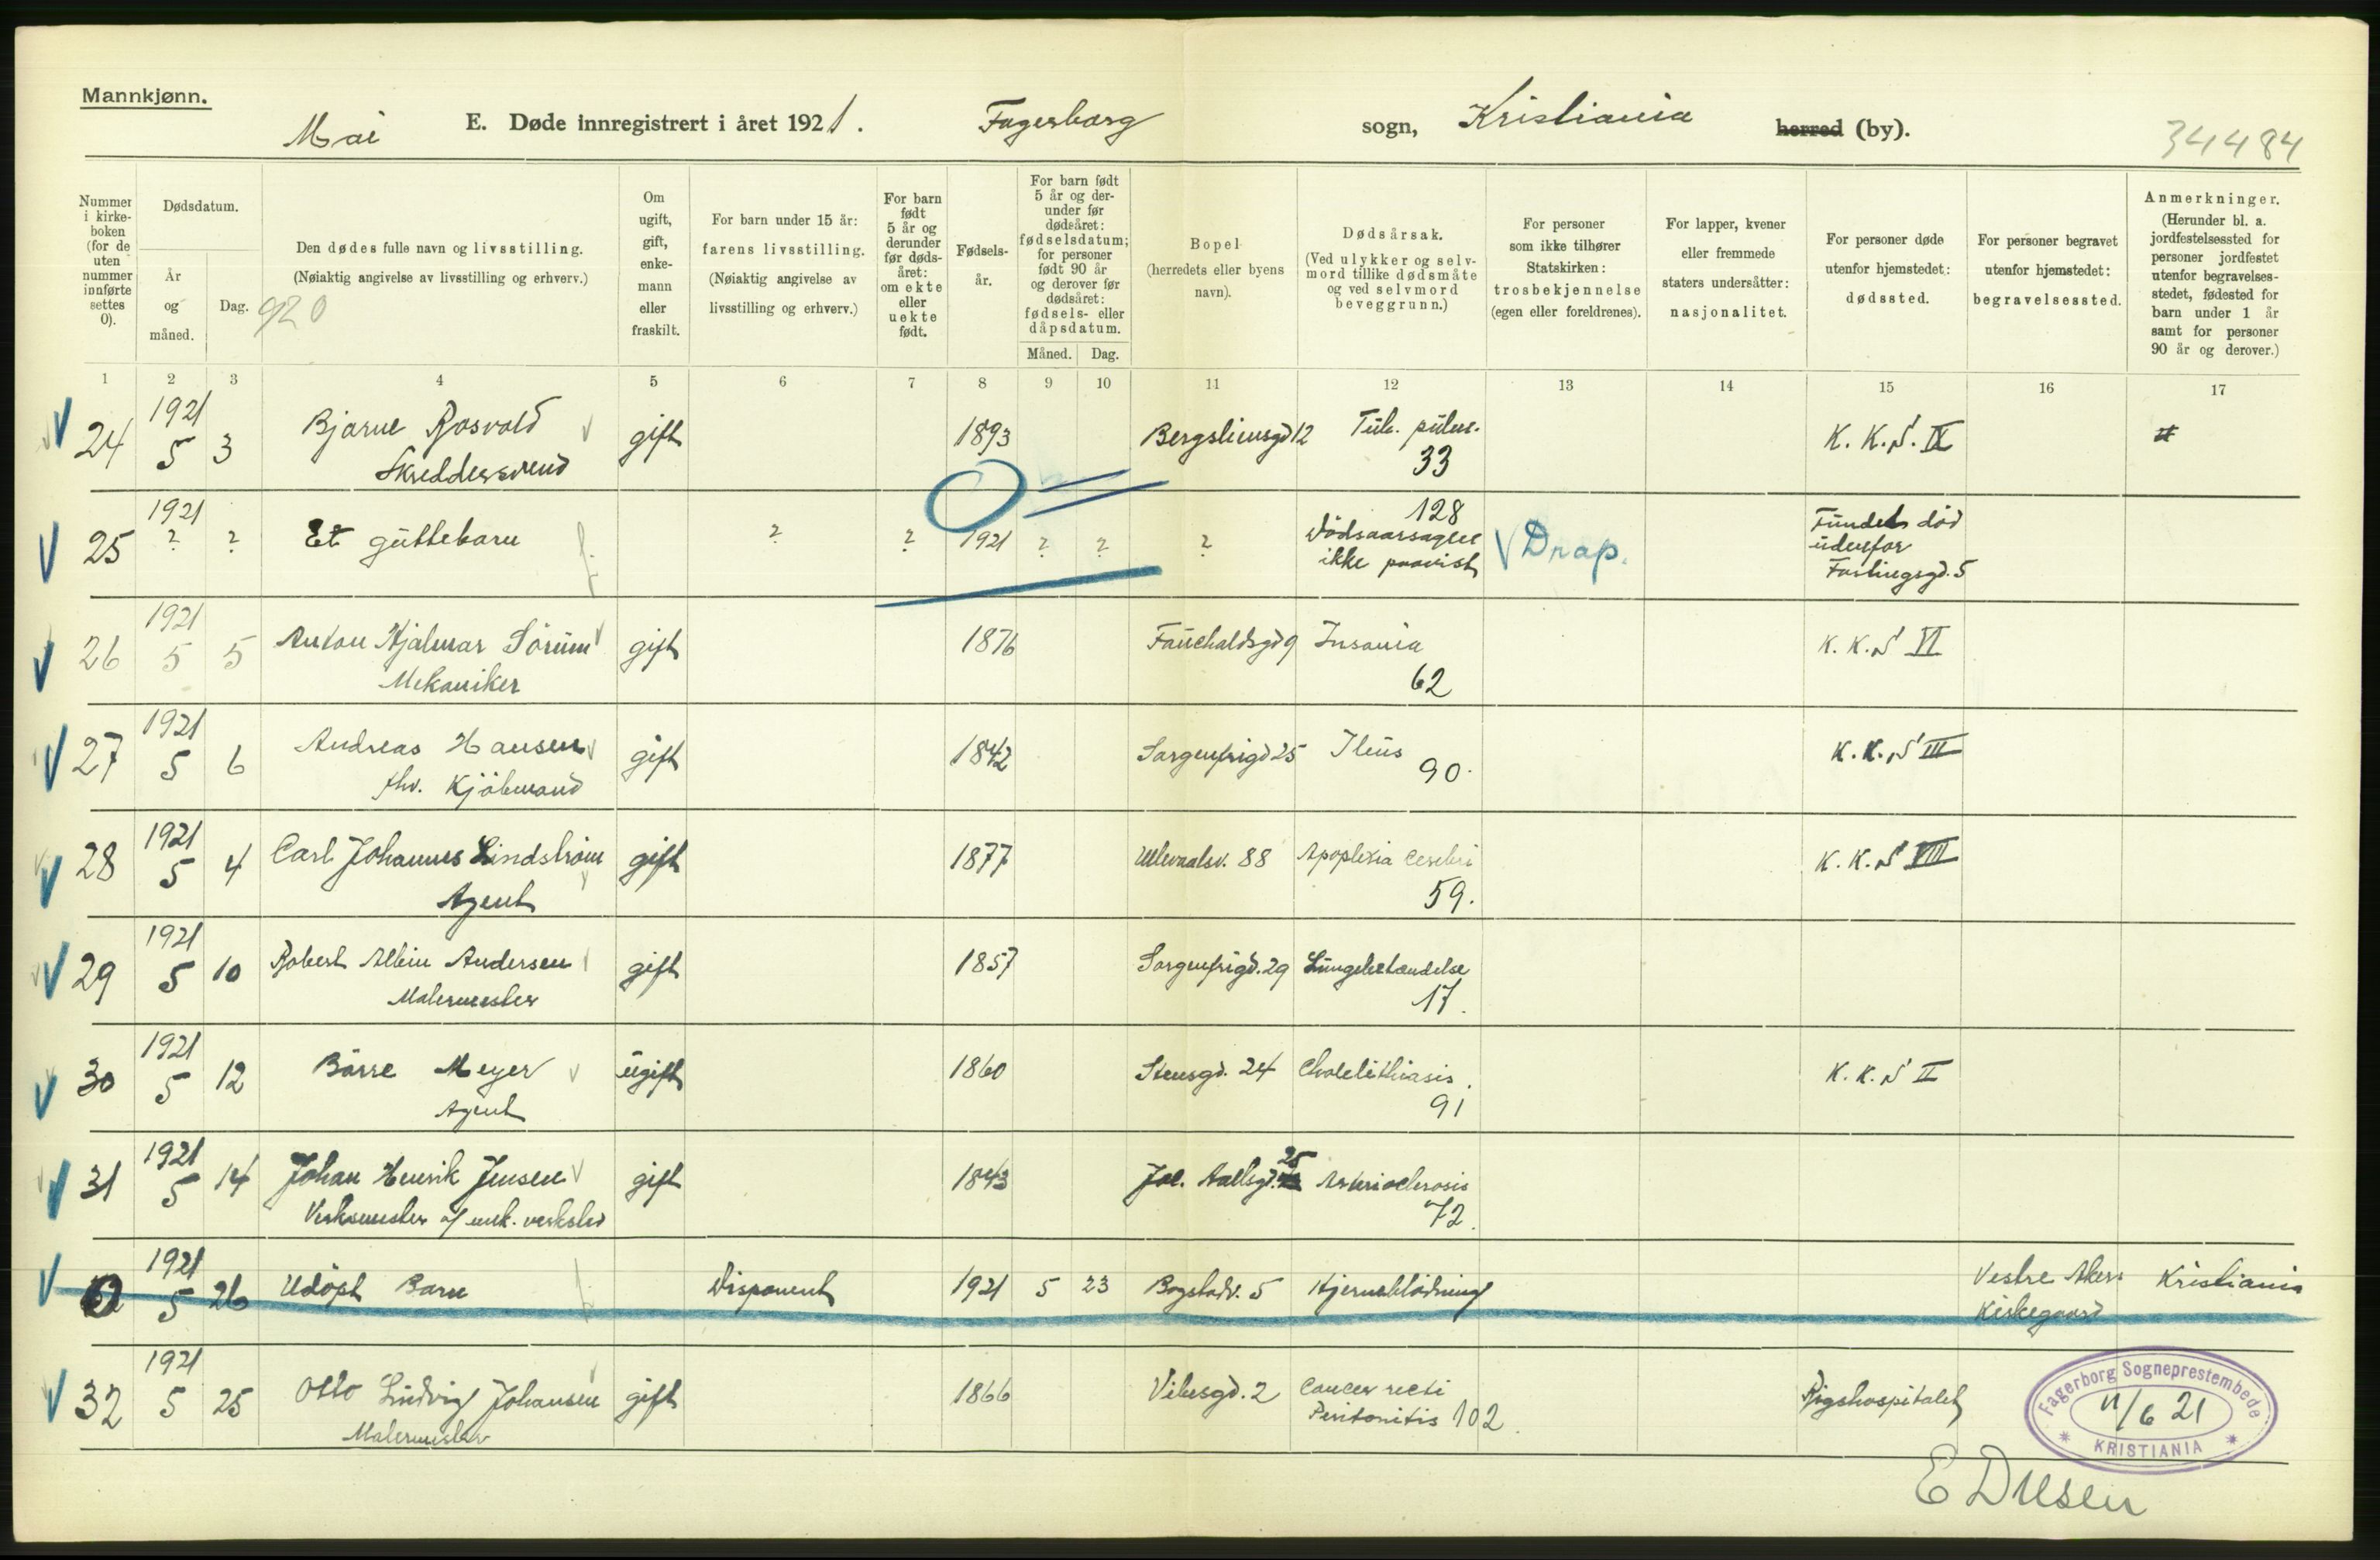 Mannkjønn.
Mai E. Døde innregistrert i året 1921. Fagerborg sogn, Kristiania herred (by).
34484
Nummer i kirkeboken (for de uten nummer innførte settes 0).
Dødsdatum.
År og måned.
Dag.
920
Den dødes fulle navn og livsstilling.
(Nøiaktig angivelse av livsstilling og erhverv.)
Om ugift, gift, enkemann eller fraskilt.
For barn under 15 år: farens livsstilling. (Nøiaktig angivelse av livsstilling og erhverv.)
For barn født 5 år og derunder før dødsåret: om ekte eller uekte født.
Fødselsår.
For barn født 5 år og derunder før dødsåret: fødselsdatum; for personer født 90 år og derover før dødsåret: fødsels- eller dåpsdatum.
Måned. Dag.
Bopel (herredets eller byens navn).
Dødsårsak. (Ved ulykker og selvmord tillike dødsmåte og ved selvmord beveggrunn.)
For personer som ikke tilhører Statskirken: trosbekjennelse (egen eller foreldrenes).
For lapper, kvener eller fremmede staters undersåtter: nasjonalitet.
For personer døde utenfor hjemstedet: dødssted.
For personer begravet utenfor hjemstedet: begravelsessted.
Anmerkninger. (Herunder bl. a. jordfestelsessted for personer jordfestet utenfor begravelsesstedet, fødested for barn under 1 år samt for personer 90 år og derover.)
1 2 3 4 5 6 7 8 9 10 11 12 13 14 15 16 17
24 1921 5 3 Bjarne Rosvold gift 1893 Bergsliensgd 12 Tub. pulm. K. K. S. IX
Skreddersvend 33
25 1921 ? ? Et guttebarn ? ? 1921 ? ? ? 128 Dödsaarsagen ikke paavist Drap. Fundet död udenfor Fastingsgd. 5
26 1921 5 5 Anton Hjalmar Sörum gift 1876 Fauchaldsgd 9 Insania K. K. S VI
Mekaniker 62
27 1921 5 6 Andreas Hansen gift 1842 Sorgenfrigd 25 Ileus K. K. S III
fhv. Kjöbmand 90.
28 1921 5 4 Carl Johannes Lindström gift 1877 Ullevaalsv. 88 Apoplexia cerebri K. K. S VIII
Agent 59.
29 1921 5 10 Robert Albin Andersen gift 1857 Sorgenfrigd. 29 Lungebetændelse
Malermester 17.
30 1921 5 12 Börre Meyer ugift 1860 Stensgd. 24 Cholelithiasis. K. K. S II
Agent 91
31 1921 5 14 Johan Henrik Jensen gift 1843 Jac. Aallsgd. 25 Arterioclerosis
Verksmester af mek. verksted 72.
1921 5 26 Udöpt Barn Disponent 1921 5 23 Bogstadv. 5 Hjerneblödning Vestre Akers Kirkegaard Kristiania
32 1921 5 25 Otto Ludvig Johansen gift 1866 Vibesgd. 2 Cancer recti Rigshospitalet
Malermester Peritonitis 102.
Fagerborg Sogneprestembede
11/6 21
KRISTIANIA